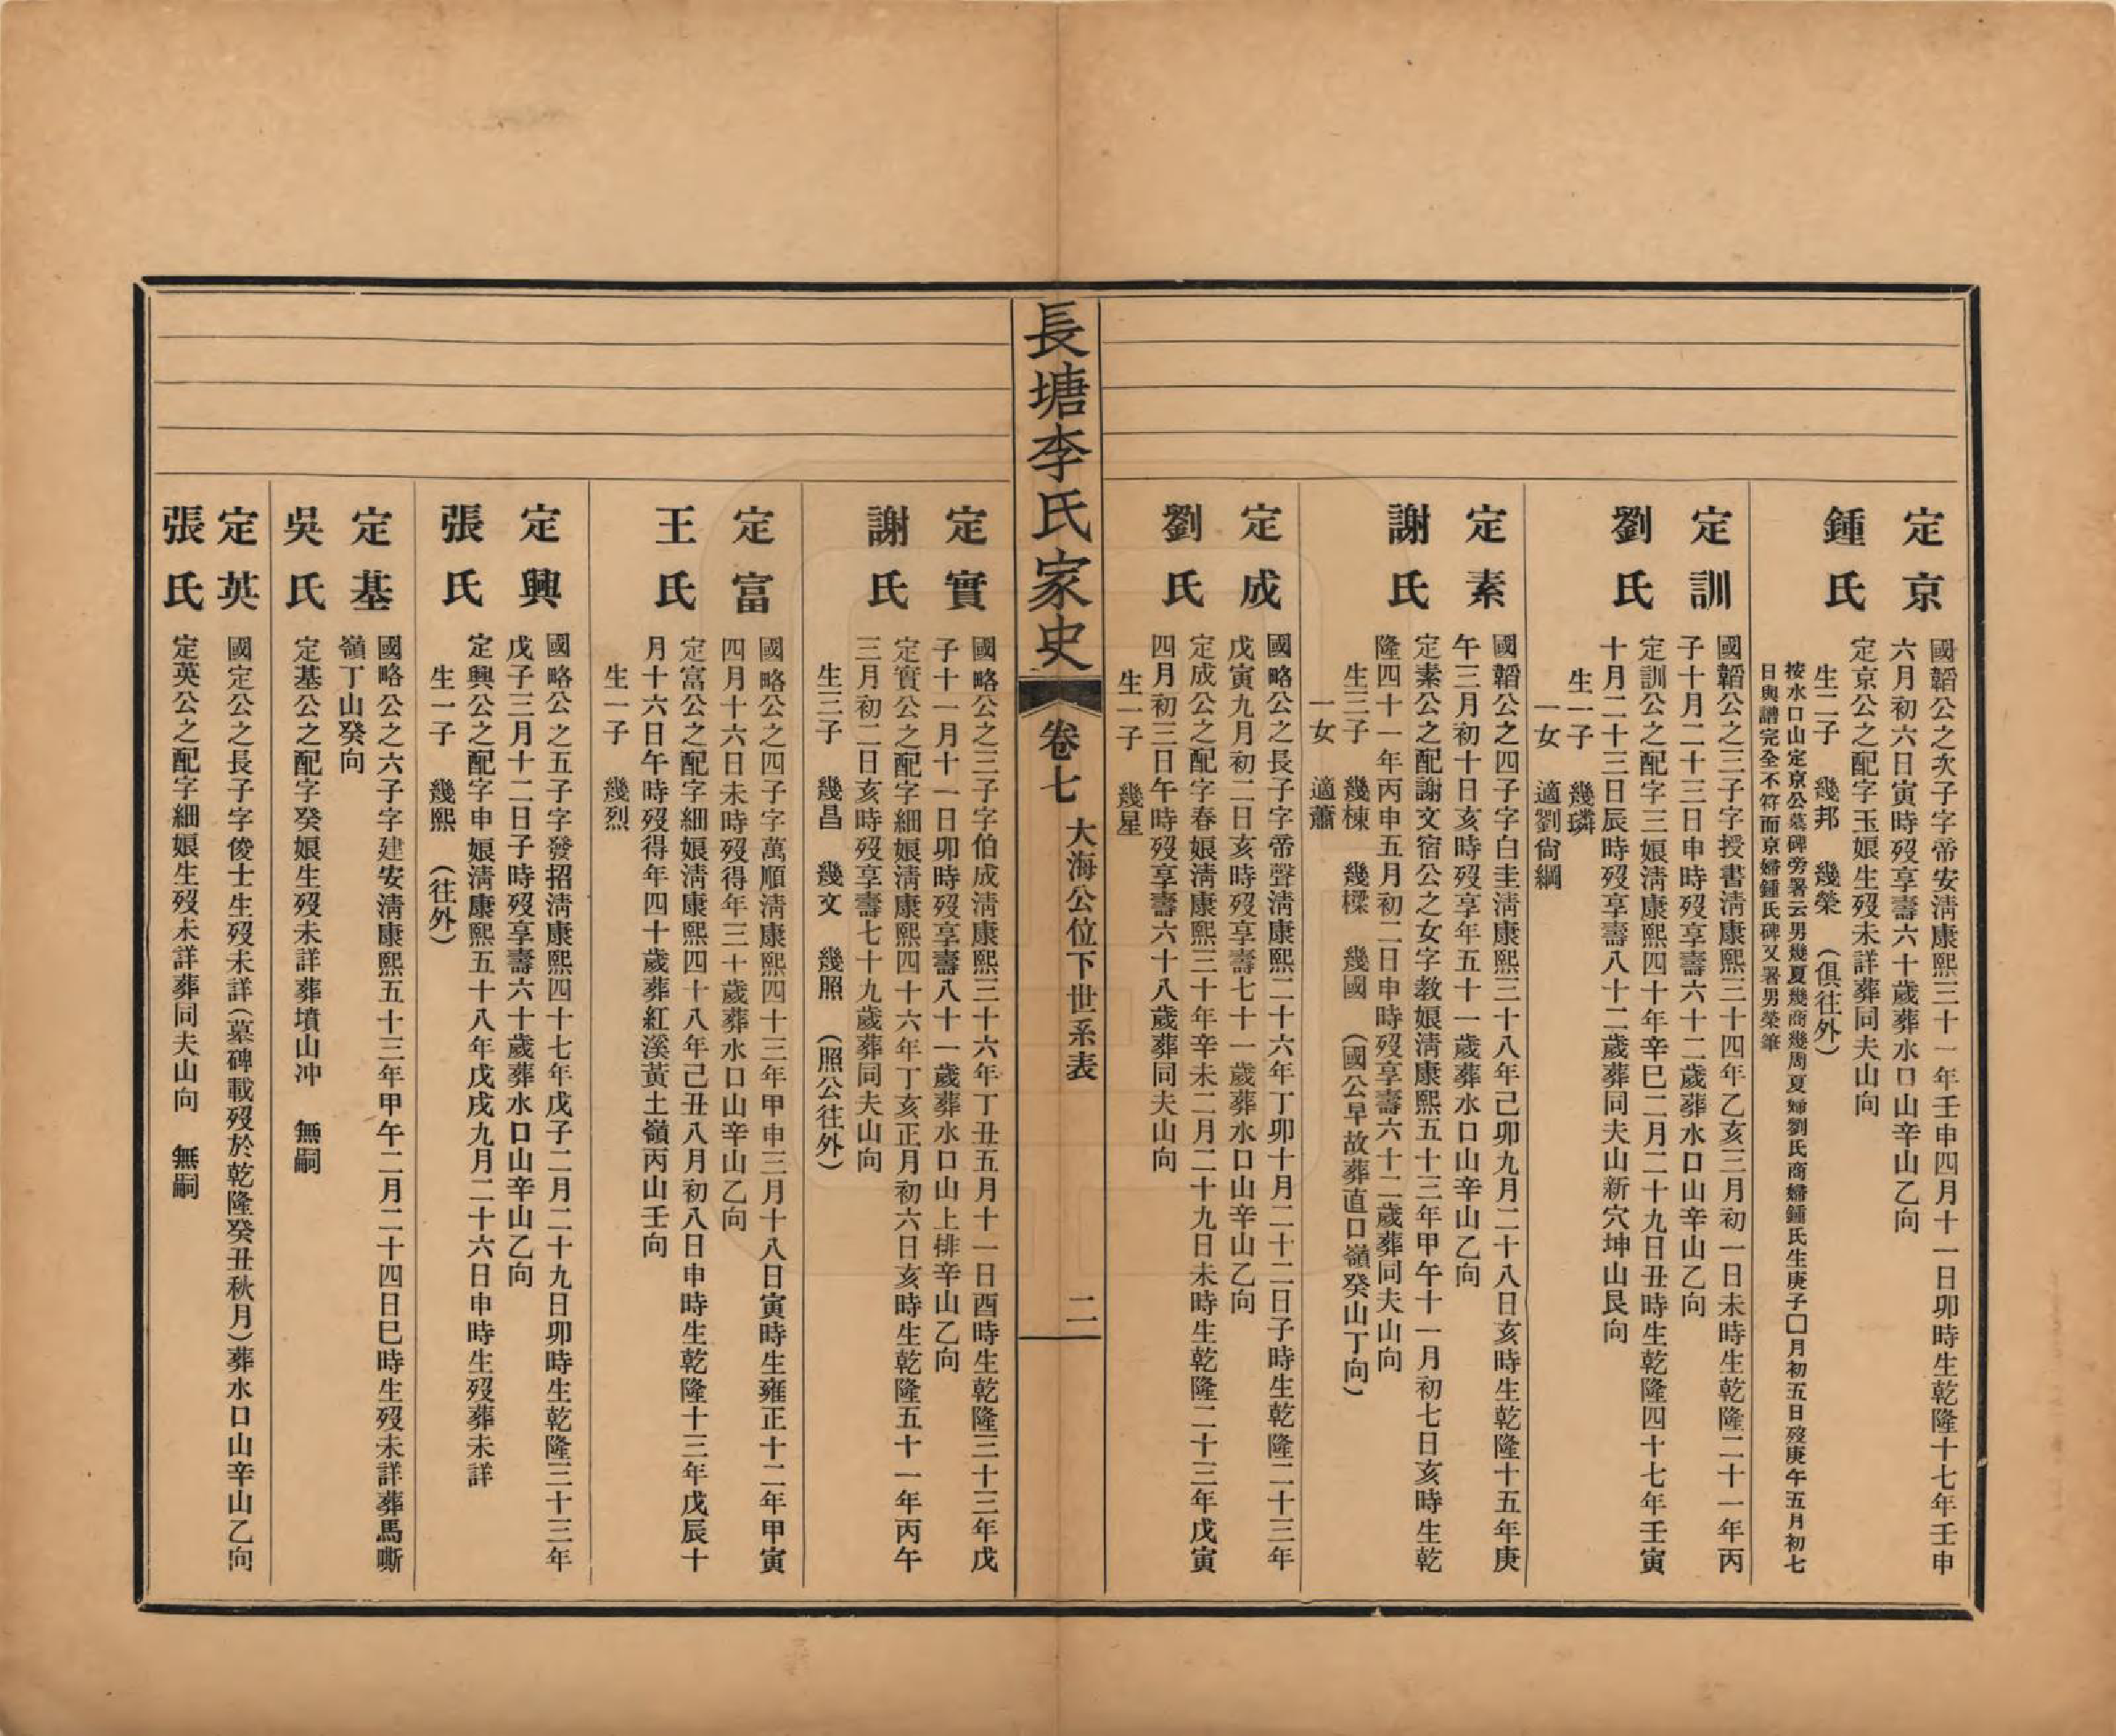 定京
國韜公之次子字帝安淸康熙三十一年壬申四月十一日卯時生乾隆十七年壬申
六月初六日寅時歿享壽六十歲葬水口山辛山乙向
鍾氏
定京公之配字玉娘生歿未詳葬同夫山向
生二子　幾邦　幾榮　（俱往外）
按水口山定京公墓碑旁署云男幾夏幾商幾周夏婦劉氏商婦鍾氏生庚子囗月初五日歿庚午五月初七
日與譜完全不符而京婦鍾氏碑又署男榮筆
定訓
國韜公之三子字授書淸康熙三十四年乙亥三月初一日未時生乾隆二十一年丙
子十月二十三日申時歿享壽六十二歲葬水口山辛山乙向
劉氏
定訓公之配字三娘淸康熙四十年辛巳二月二十九日丑時生乾隆四十七年壬寅
十月二十三日辰時歿享壽八十二歲葬同夫山新穴坤山艮向
生一子　幾璘
一女　適劉尙綱
定素
國韜公之四子字白圭淸康熙三十八年己卯九月二十八日亥時生乾隆十五年庚
午三月初十日亥時歿享年五十一歲葬水口山辛山乙向
謝氏
定素公之配謝文宿公之女字敎娘淸康熙五十三年甲午十一月初七日亥時生乾
隆四十一年丙申五月初二日申時歿享壽六十二歲葬同夫山向
生三子　幾棟　幾樑　幾國　（國公早故葬直口嶺癸山丁向）
一女　適蕭
定成
國略公之長子字帝聲淸康熙二十六年丁卯十月二十二日子時生乾隆二十三年
戊寅九月初二日亥時歿享壽七十一歲葬水口山辛山乙向
劉氏
定成公之配字春娘淸康熙三十年辛未二月二十九日未時生乾隆二十三年戊寅
四月初三日午時歿享壽六十八歲葬同夫山向
生一子　幾星
長塘李氏家史
卷七　大海公位下世系表　二
定實
國略公之三子字伯成淸康熙三十六年丁丑五月十一日酉時生乾隆三十三年戊
子十一月十一日卯時歿享壽八十一歲葬水口山上排辛山乙向
謝氏
定實公之配字細娘淸康熙四十六年丁亥正月初六日亥時生乾隆五十一年丙午
三月初二日亥時歿享壽七十九歲葬同夫山向
生三子　幾昌　幾文　幾照　（照公往外）
定富
國略公之四子字萬順淸康熙四十三年甲申三月十八日寅時生雍正十二年甲寅
四月十六日未時歿得年三十歲葬水口山辛山乙向
王氏
定富公之配字細娘淸康熙四十八年己丑八月初八日申時生乾隆十三年戊辰十
月十六日午時歿得年四十歲葬紅溪黃土嶺丙山壬向
生一子　幾烈
定興
國略公之五子字發招淸康熙四十七年戊子二月二十九日卯時生乾隆三十三年
戊子三月十二日子時歿享壽六十歲葬水口山辛山乙向
張氏
定興公之配字申娘淸康熙五十八年戊戌九月二十六日申時生歿葬未詳
生一子　幾熙　（往外）
定基
國略公之六子字建安淸康熙五十三年甲午二月二十四日巳時生歿未詳葬馬嘶
嶺丁山癸向
吳氏
定基公之配字癸娘生歿未詳葬墳山冲　無嗣
定英
國定公之長子字俊士生歿未詳（墓碑載歿於乾隆癸丑秋月）葬水口山辛山乙向
張氏
定英公之配字細娘生歿未詳葬同夫山向　無嗣